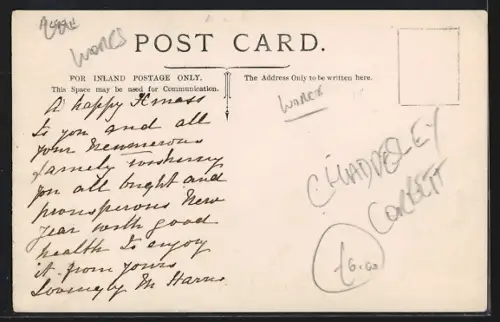 WORCS
POST CARD.
FOR INLAND POSTAGE ONLY.
This Space may be used for Communication.
The Address Only to be written here.
A happy Xmass
to you and all
your Neumerous
family wishing
you all bright and
prosperous New
Year with good
health to enjoy
it from yours
Lovingly M Harris
WORCS
CHADDESLEY
CORBETT
£6.00